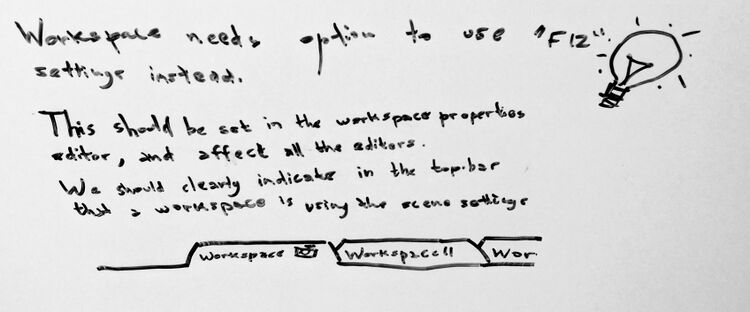 Workspace needs option to use "F12"
settings instead.
This should be set in the workspace properties
editor, and affect all the editors.
We should clearly indicate in the top-bar
that a workspace is using the scene settings
Workspace Workspace!! Wor